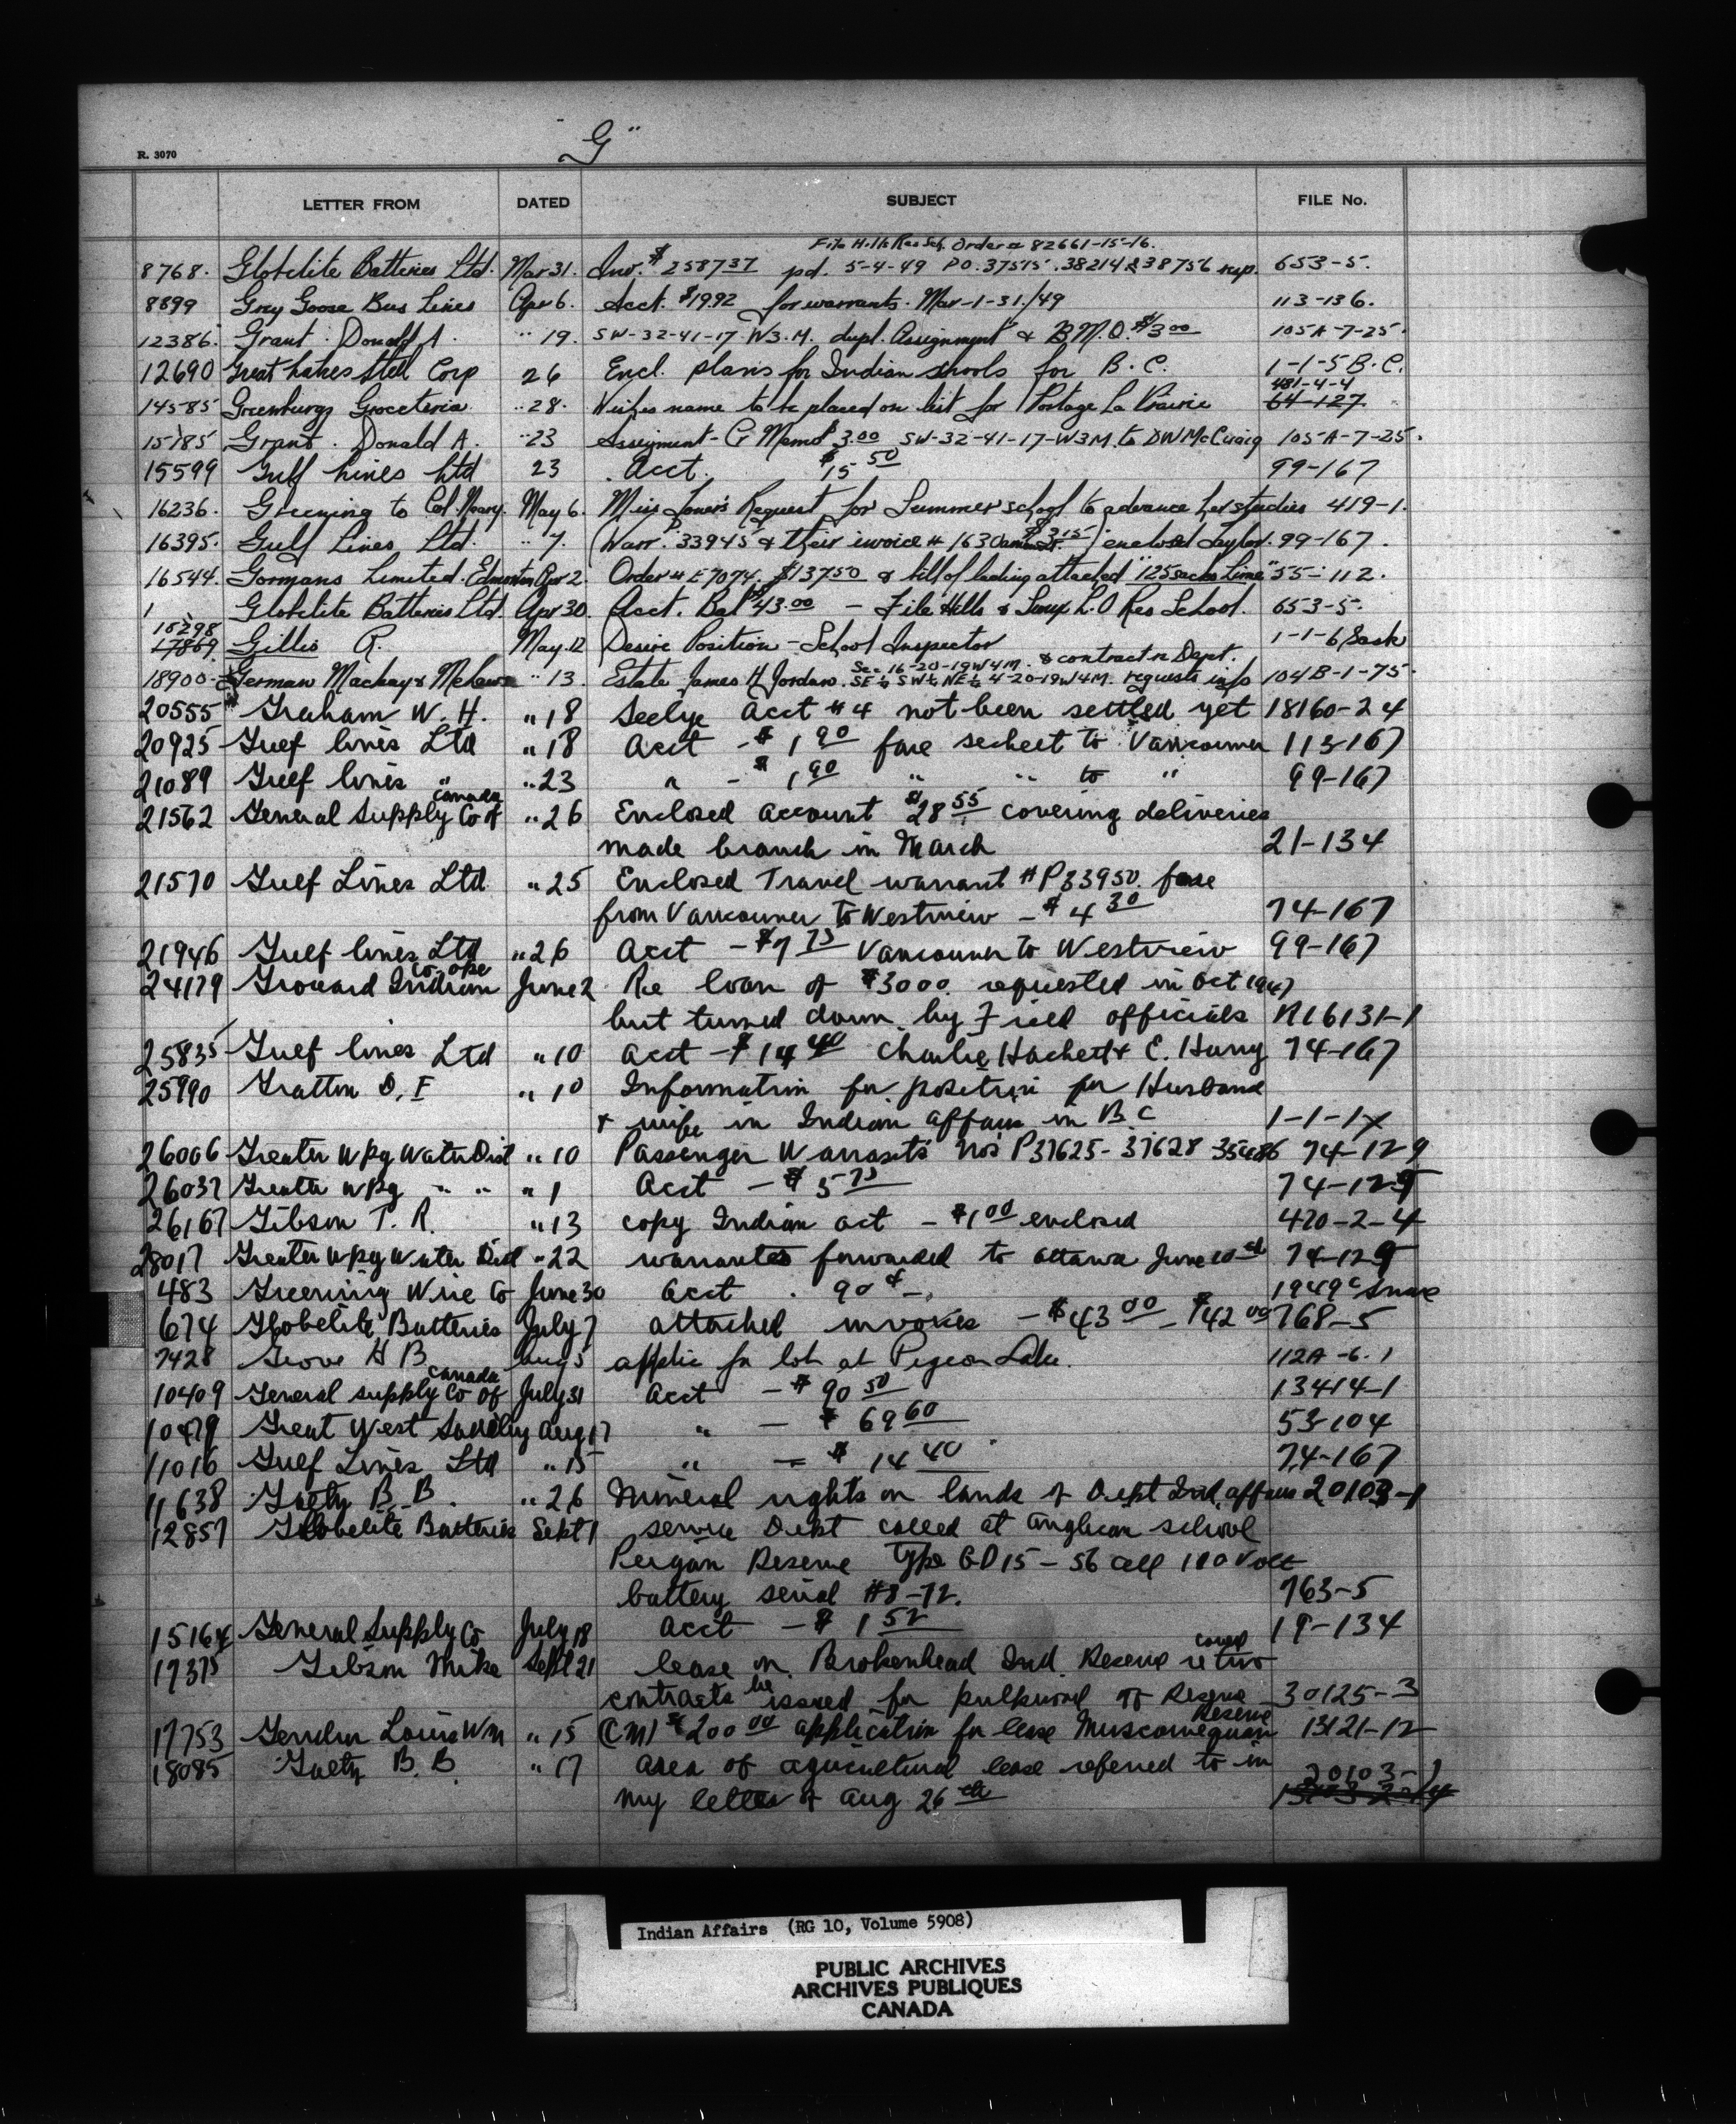 "G"
R. 3070
LETTER FROM DATED SUBJECT FILE No.
File Hills Res Sch. Order # 82661-15-16.
8768. Globelite Batteries Ltd. Mar 31. Inv. $258737 pd. 5-4-49 PO. 37515. 38214 & 38756 resp. 653-5.
8899 Grey Goose Bus Lines Apr 6. Acct. $19.92 for warrants. Mar-1-31/49 113-136.
12386. Grant. Donald A. " 19. SW-32-41-17-W3.M. dupl. Assignment & B.M.O. $3.00 105A-7-25.
12690 Great Lakes Steel Corp 26 Encl. plans for Indian schools for B.C. 1-1-5 B.C.
481-4-4
14585 Greenburgs Groceteria " 28. Wishes name to be placed on list for Portage La Prairie 64-127.
15185 Grant. Donald A. " 23 Assignment - & Memo $3.00 SW-32-41-17-W3M. to DW McCuaig 105-A-7-25.
15599 Gulf Lines Ltd 23 Acct. $15 50 99-167
16236. Greening to Col. Neary. May 6. Miss Jones's Request for Summer school to advance her studies 419-1.
16395. Gulf Lines Ltd. " 7. (Warr. P 33945 & their invoice # 1630 $3.15) enclosed Taylor. 99-167.
16544. Gormans Limited. Edmonton Apr 2. Order # E7074. $137.50 & bill of lading attached "125 sacks Lime" 55-112.
1 Globelite Batteries Ltd. Apr 30. Acct. Bal $43.00 - File Hills & Sioux L.O Res School. 653-5.
18298
17869 Gillis R. May 12 Desire Position - School Inspector 1-1-6 Sask
Sec. 16-20-19W4M. & contract re Dept.
18900. German Mackay & " 13. Estate James H Jordan. SE¼ SW¼ NE¼ 4-20-19W4M. requests info 104B-1-75.
20555 Graham W. H. " 18 Seelye Acct #4 not been settled yet 18160-24
20925 Gulf Lines Ltd " 18 Acct - $1 90 fare sechelt to Vancouver 113-167
21089 Gulf lines " " 23 " - $1 90 " " to " 99-167
canada
21562 General Supply Co of " 26 Enclosed account $28 55 covering deliveries
made branch in March 21-134
21570 Gulf Lines Ltd " 25 Enclosed Travel warrant #P33950. fare
from Vancouver to Westview - $4 30 74-167
21946 Gulf lines Ltd " 26 Acct - $7 75 Vancouver to Westview 99-167
co-ope
24179 Grouard Indian June 2 Re loan of $3000. requested in Oct 1947
but turned down by Field officials R16131-1
25835 Gulf lines Ltd " 10 acct - $14 40 Charlie Hackett & E. Harry 74-167
25990 Gratton D. F " 10 Information for position for Husband
+ wife in Indian affairs in B C 1-1-1x
26006 Greater Wpg Water Dist " 10 Passenger Warrants nos P37625-37628 74-129
26037 Greater Wpg " " " 1 Acct - $5 75 74-129
26167 Gibson T. R. " 13 copy Indian act - $1 00 enclosed 470-2-4
28017 Greater Wpg Water Dist " 22 warrants forwarded to Ottawa June 10th 74-129
483 Greening Wire Co June 30 acct . 90¢ -. 1949
674 Globelite Batteries July 7 attached invoices - $43 00 - $42 00 768-5
7428 Grove H B Aug 5 applic for lot at Pigeon Lake. 112A-6.1
canada
10409 General supply Co of July 31 Acct - $90 50 13414-1
10479 Great West Saddlery Aug 17 " - $69 60 53-104
11016 Gulf Lines Ltd " 15 " - $14 40 74-167
11638 Gaetz B. B. " 26 Mineral rights on lands of Dept Ind. affairs 20103-1
12857 Globelite Batteries Sept 1 service Dept called at anglican school
Peigan Reserve Type GD15-56 cell 110 Volt
battery serial #8-72. 763-5
15164 General Supply Co July 18 acct - $1 52 19-134
17375 Gibson Mike Sept 21 lease on Brokenhead Ind. Reserve re two
could
contracts be issued for pulpwood off Reserve 30125-3
Reserve
17753 Gendur Louis Wm " 15 (CM) $200 00 application for lease Muscowequan 13121-12
18085 Gaetz B. B. " 17 area of agricultural lease referred to in 20103-1
my letter of Aug 26th
Indian Affairs (RG 10, Volume 5908)
PUBLIC ARCHIVES
ARCHIVES PUBLIQUES
CANADA